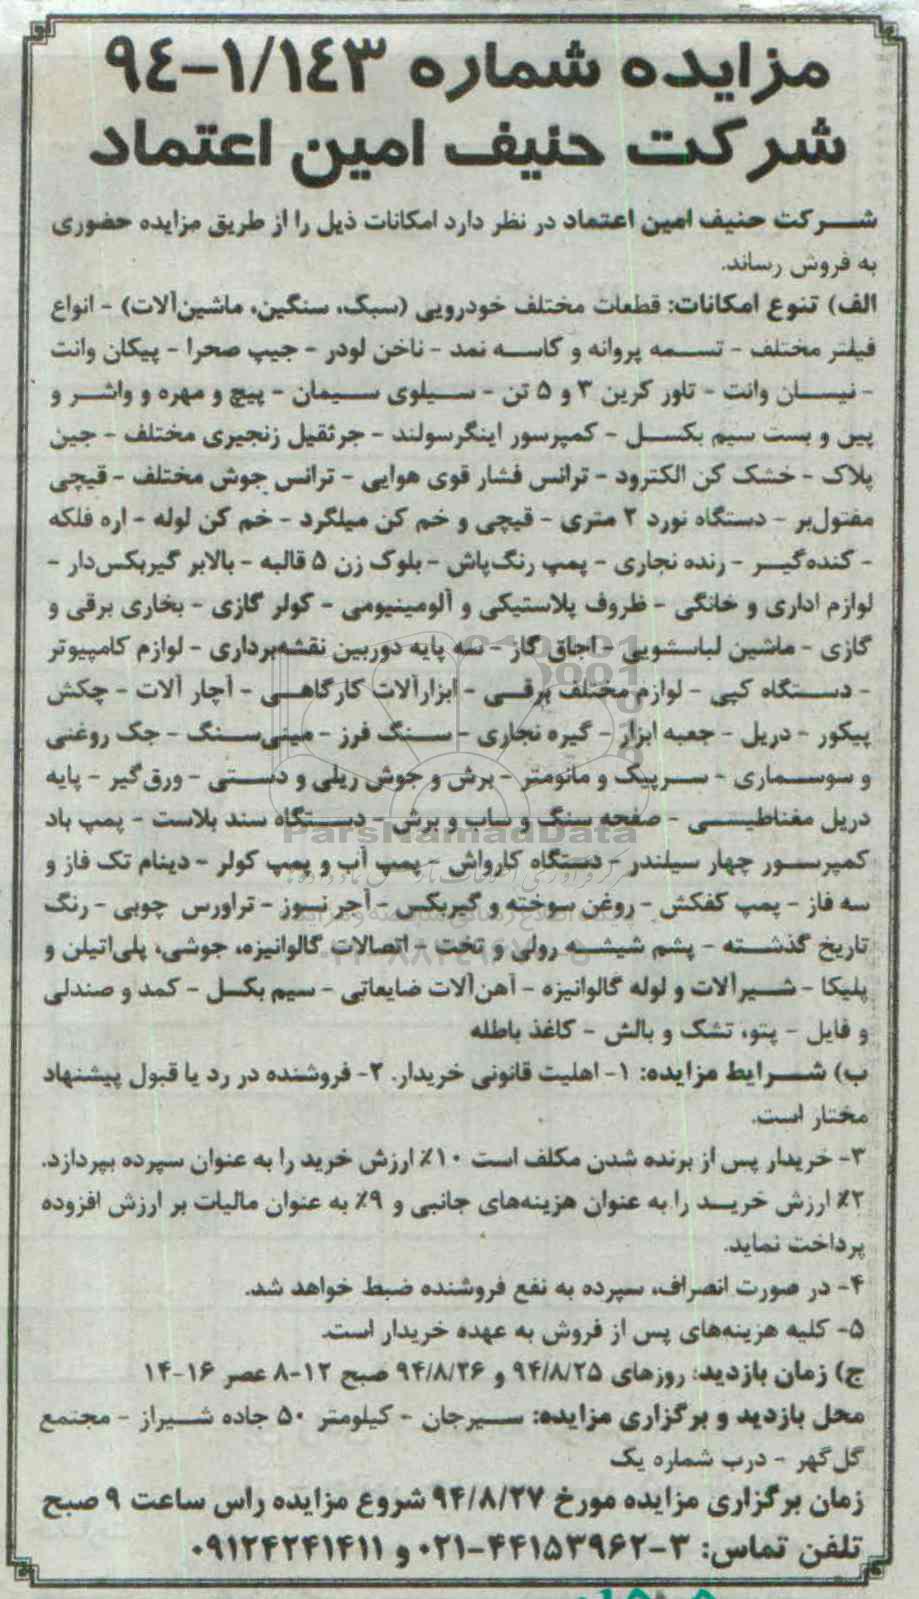 مزایده شماره ۱/۱۴۳-۹۴
شرکت حنیف امین اعتماد
شرکت حنیف امین اعتماد در نظر دارد امکانات ذیل را از طریق مزایده حضوری
به فروش رساند.
الف) تنوع امکانات: قطعات مختلف خودرویی (سبک، سنگین، ماشین‌آلات) - انواع
فیلتر مختلف - تسمه پروانه و کاسه نمد - ناخن لودر - جیپ صحرا - پیکان وانت
- نیسان وانت - تاور کرین ۳ و ۵ تن - سیلوی سیمان - پیچ و مهره و واشر و
پین و بست سیم بکسل - کمپرسور اینگرسولند - جرثقیل زنجیری مختلف - جین
پلاک - خشک کن الکترود - ترانس فشار قوی هوایی - ترانس جوش مختلف - قیچی
مفتول‌بر - دستگاه نورد ۲ متری - قیچی و خم کن میلگرد - خم کن لوله - اره فلکه
- کنده‌گیر - رنده نجاری - پمپ رنگ‌پاش - بلوک زن ۵ قالبه - بالابر گیربکس‌دار -
لوازم اداری و خانگی - ظروف پلاستیکی و آلومینیومی - کولر گازی - بخاری برقی و
گازی - ماشین لباسشویی - اجاق گاز - سه پایه دوربین نقشه‌برداری - لوازم کامپیوتر
- دستگاه کپی - لوازم مختلف برقی - ابزارآلات کارگاهی - آچار آلات - چکش
پیکور - دریل - جعبه ابزار - گیره نجاری - سنگ فرز - مینی‌سنگ - جک روغنی
و سوسماری - سرپیک و مانومتر - برش و جوش ریلی و دستی - ورق‌گیر - پایه
دریل مغناطیسی - صفحه سنگ و ساب و برش - دستگاه سند بلاست - پمپ باد
کمپرسور چهار سیلندر - دستگاه کارواش - پمپ آب و پمپ کولر - دینام تک فاز و
سه فاز - پمپ کفکش - روغن سوخته و گیربکس - آجر نسوز - تراورس چوبی - رنگ
تاریخ گذشته - پشم شیشه رولی و تخت - اتصالات گالوانیزه، جوشی، پلی‌اتیلن و
پلیکا - شیرآلات و لوله گالوانیزه - آهن‌آلات ضایعاتی - سیم بکسل - کمد و صندلی
و فایل - پتو، تشک و بالش - کاغذ باطله
ب) شرایط مزایده: ۱- اهلیت قانونی خریدار. ۲- فروشنده در رد یا قبول پیشنهاد
مختار است.
۳- خریدار پس از برنده شدن مکلف است ۱۰٪ ارزش خرید را به عنوان سپرده بپردازد.
۲٪ ارزش خرید را به عنوان هزینه‌های جانبی و ۹٪ به عنوان مالیات بر ارزش افزوده
پرداخت نماید.
۴- در صورت انصراف، سپرده به نفع فروشنده ضبط خواهد شد.
۵- کلیه هزینه‌های پس از فروش به عهده خریدار است.
ج) زمان بازدید: روزهای ۹۴/۸/۲۵ و ۹۴/۸/۲۶ صبح ۱۲-۸ عصر ۱۶-۱۴
محل بازدید و برگزاری مزایده: سیرجان - کیلومتر ۵۰ جاده شیراز - مجتمع
گل‌گهر - درب شماره یک
زمان برگزاری مزایده مورخ ۹۴/۸/۲۷ شروع مزایده راس ساعت ۹ صبح
تلفن تماس: ۳-۴۴۱۵۳۹۶۲-۰۲۱ و ۰۹۱۲۴۲۴۱۴۱۱
ParsNamadData